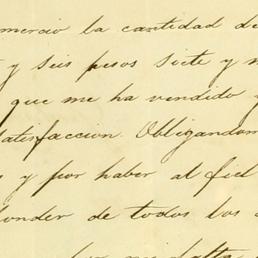 mercio la cantidad de
y seis pesos siete y m
que me ha vendido y
satisfaccion. Obligandom
s y por haber al fiel
ponder de todos los